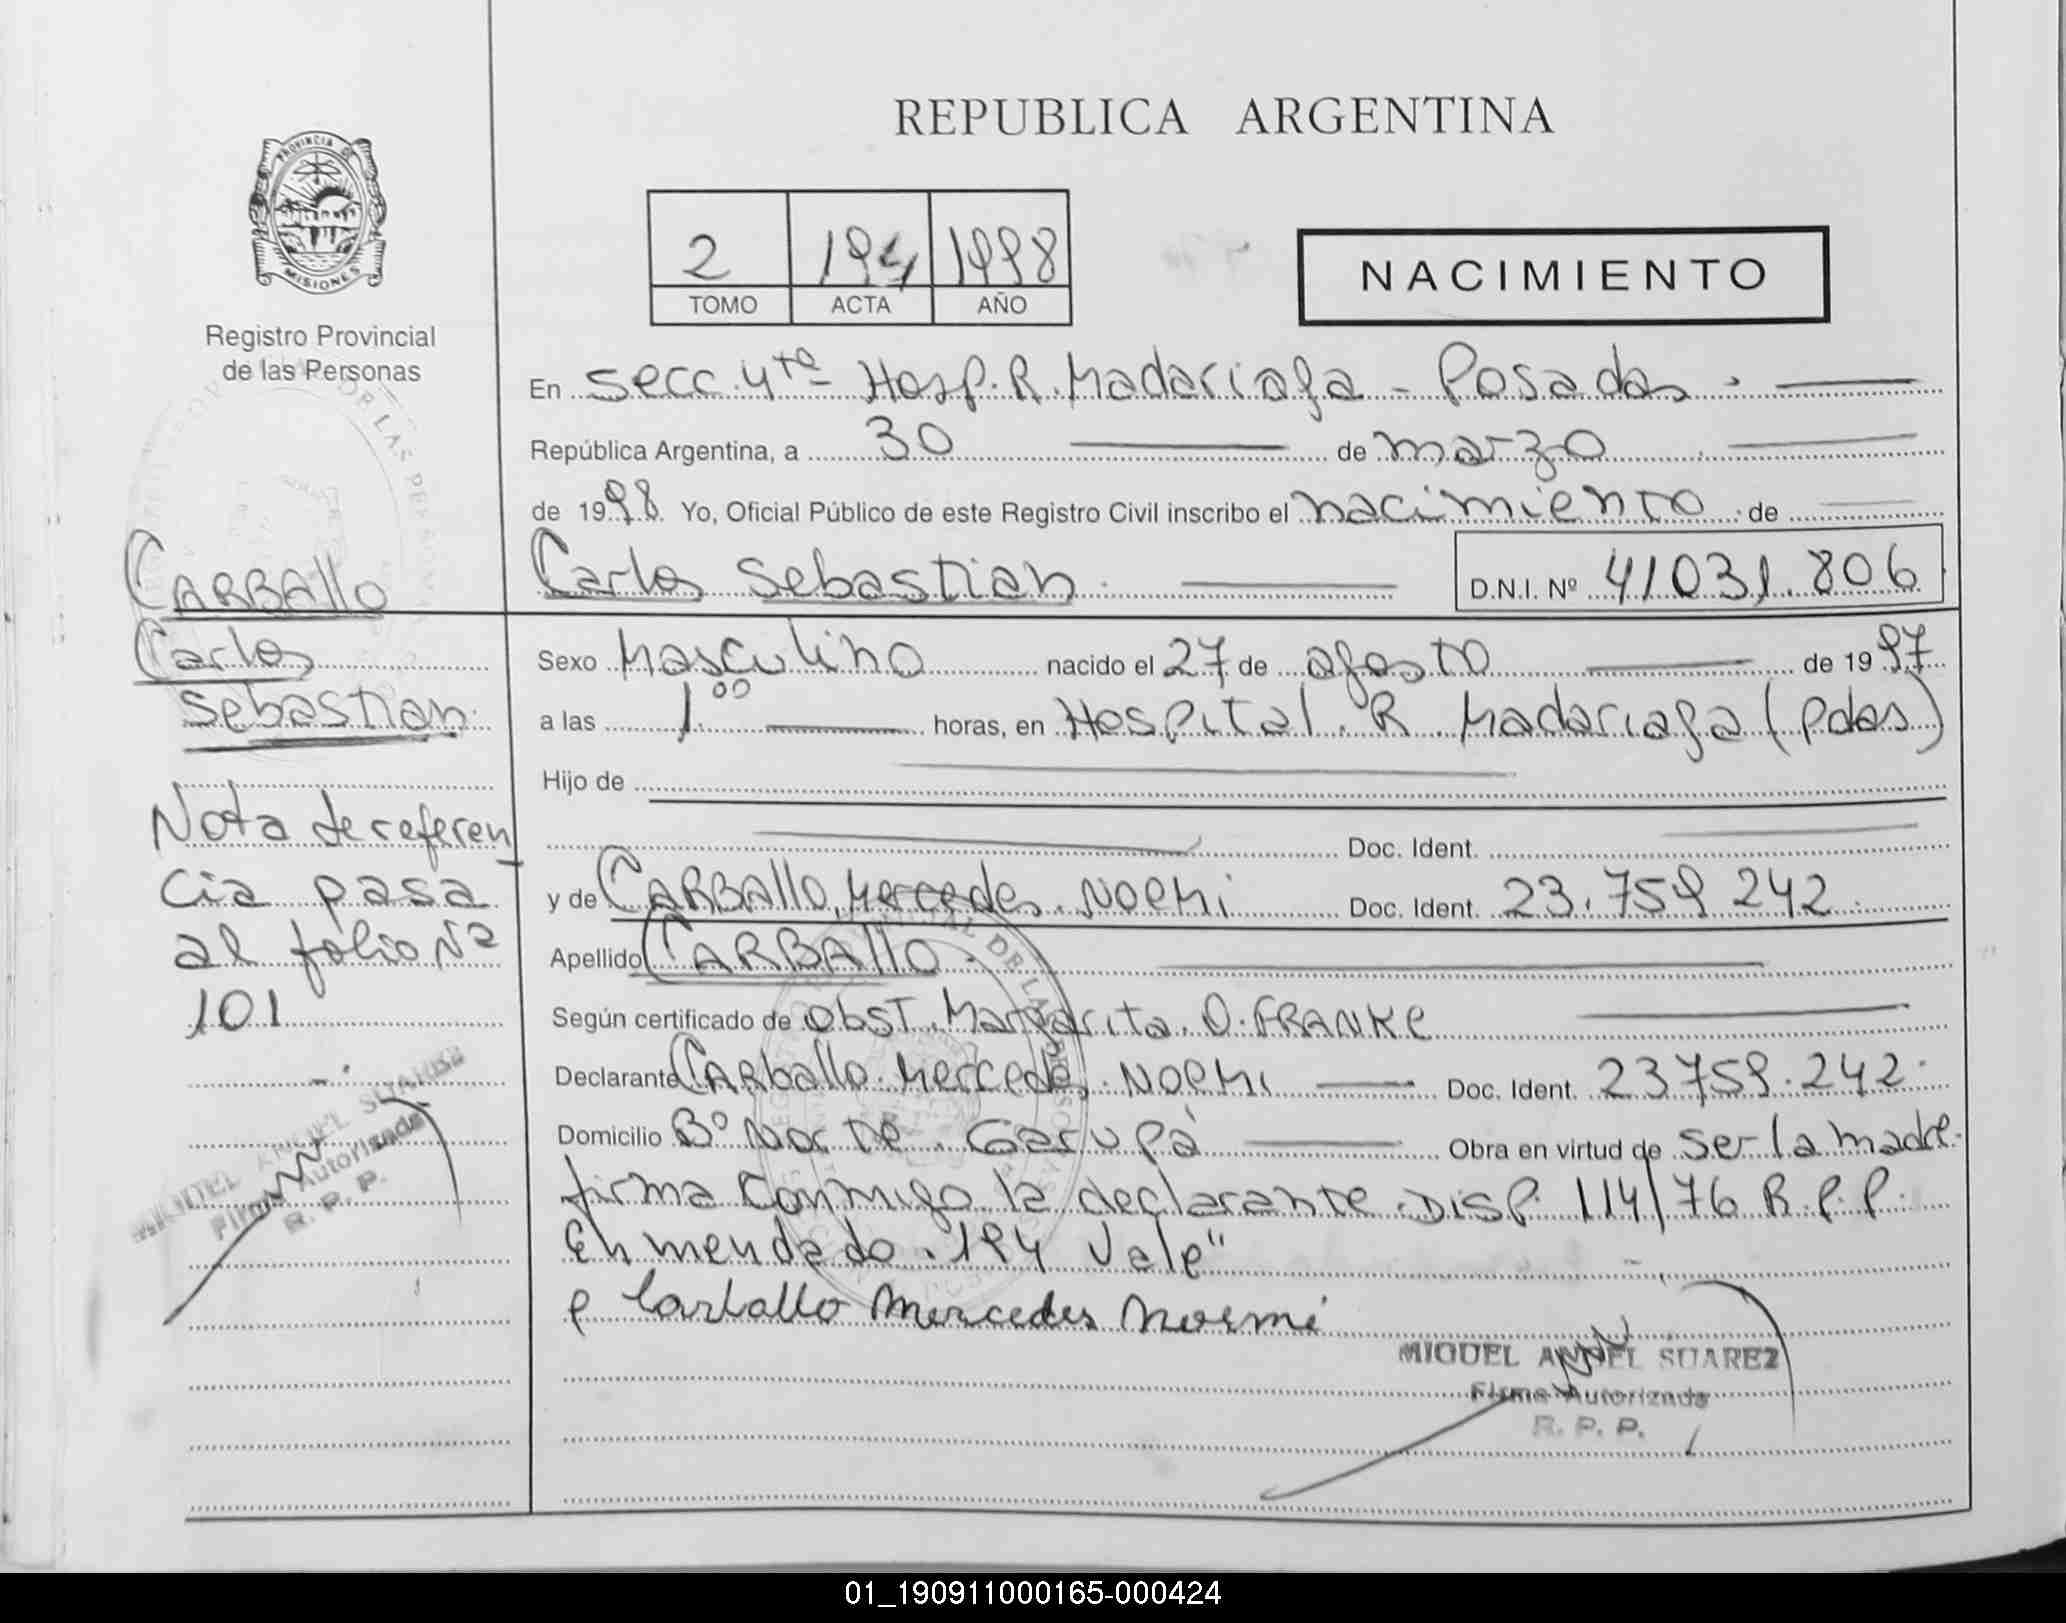 REPUBLICA ARGENTINA
PROVINCIA DE
MISIONES
Registro Provincial
de las Personas
2 194 1998
TOMO ACTA AÑO
NACIMIENTO
En Secc. 4ta Hosp. R. Madariaga - Posadas.
República Argentina, a 30 de marzo
de 1998. Yo, Oficial Público de este Registro Civil inscribo el nacimiento de
Carlos Sebastian D.N.I. Nº 41031.806
CARBALLO
Carlos
Sebastian
Sexo Masculino nacido el 27 de agosto de 1997
a las 1.00 horas, en Hospital R. Madariaga (Pdas)
Hijo de
Doc. Ident.
y de CARBALLO, Mercedes Noemi Doc. Ident. 23.759.242.
Apellido CARBALLO.
Según certificado de Obst. Margarita O. FRANKE
Declarante CARballo Mercedes Noemi Doc. Ident. 23759.242.
Domicilio Bº Norte. Garupá Obra en virtud de ser la madre.
firma conmigo la declarante. Disp. 114/76 R.P.P.
Enmendado. 194 Vale"
Carballo Mercedes Noemi
MIGUEL ANGEL SUAREZ
Firma Autorizada
R. P. P.
Nota de referen
cia pasa
al folio Nº
101
MIGUEL ANGEL SUAREZ
Firma Autorizada
R. P. P.
01_190911000165-000424